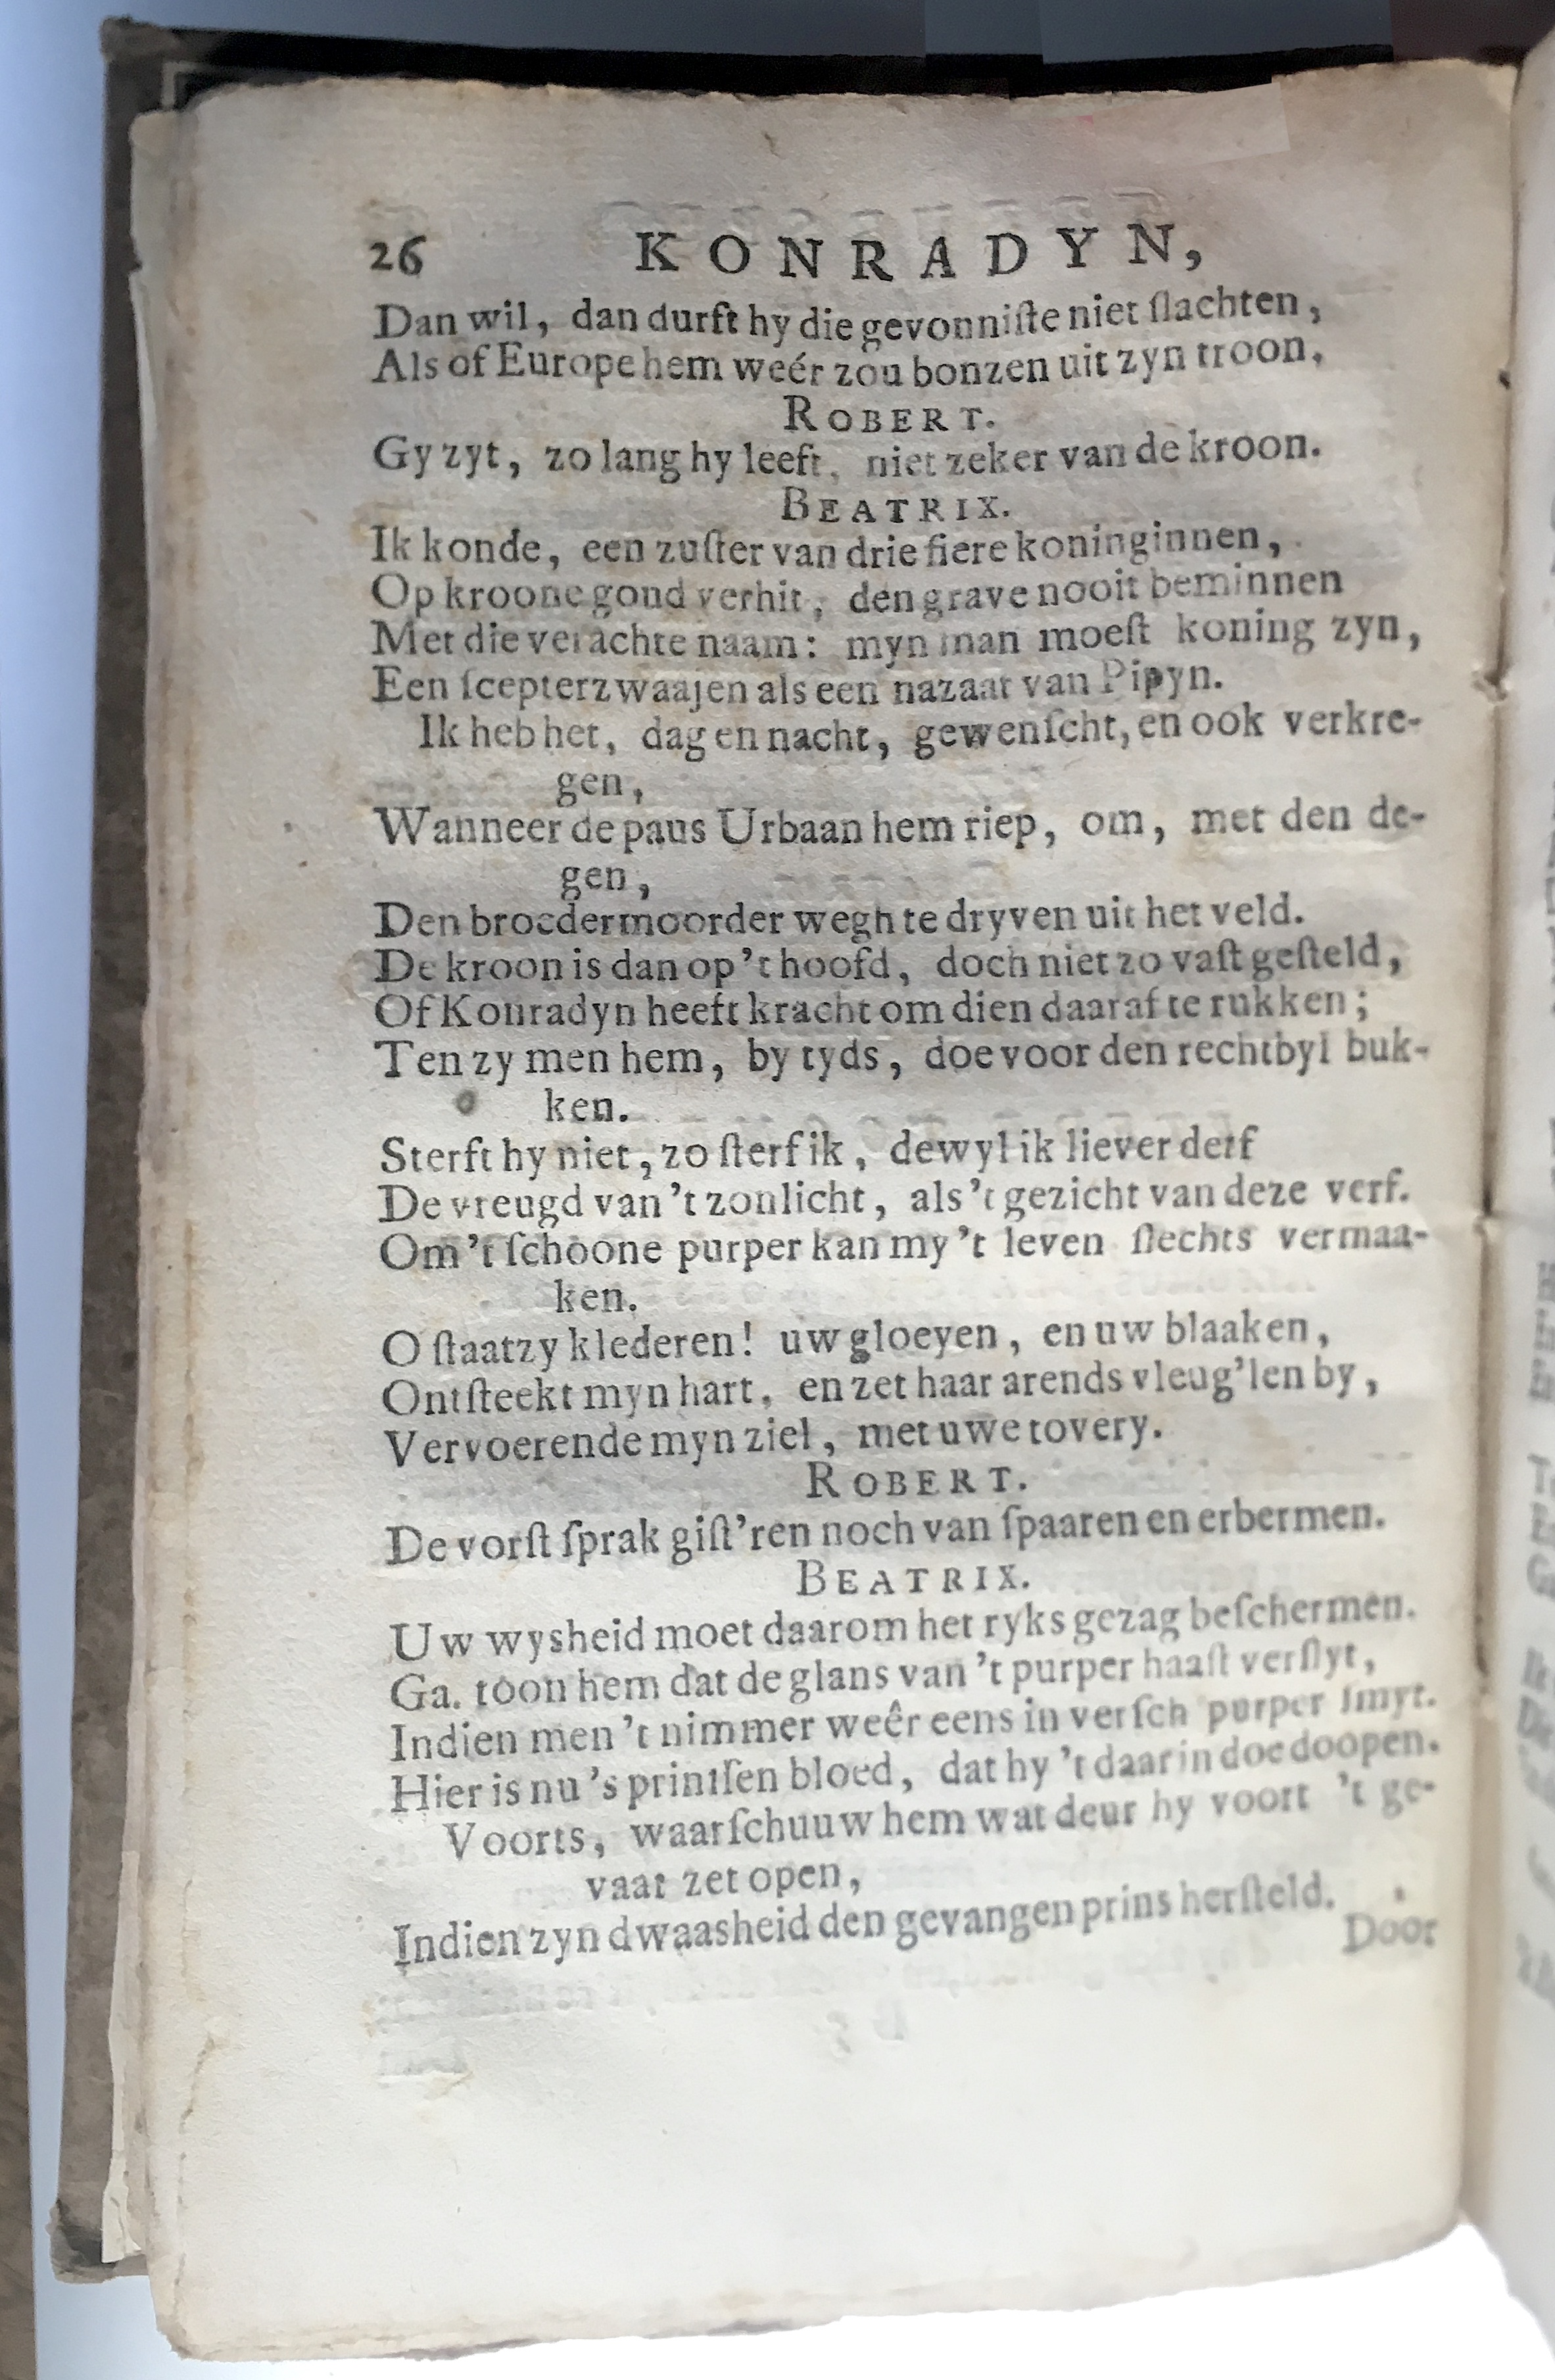 26 KONRADYN,
Dan wil, dan durft hy die gevonniſte niet ſlachten,
Als of Europe hem weér zou bonzen uit zyn troon.
ROBERT.
Gy zyt, zo lang hy leeft, niet zeker van de kroon.
BEATRIX.
Ik konde, een zuſter van drie fiere koninginnen,
Op kroone goud verhit, den grave nooit beminnen
Met die verachte naam: myn man moeſt koning zyn,
Een ſcepter zwaajen als een nazaat van Pipyn.
Ik heb het, dag en nacht, gewenſcht, en ook verkre-
gen,
Wanneer de paus Urbaan hem riep, om, met den de-
gen,
Den broedermoorder wegh te dryven uit het veld.
De kroon is dan op 't hoofd, doch niet zo vaſt geſteld,
Of Konradyn heeft kracht om dien daar af te rukken;
Ten zy men hem, by tyds, doe voor den rechtbyl buk-
ken.
Sterft hy niet, zo ſterf ik, dewyl ik liever derf
De vreugd van 't zonlicht, als 't gezicht van deze verf.
Om 't ſchoone purper kan my 't leven ſlechts vermaa-
ken.
O ſtaatzy klederen! uw gloeyen, en uw blaaken,
Ontſteekt myn hart, en zet haar arends vleug'len by,
Vervoerende myn ziel, met uwe tovery.
ROBERT.
De vorſt ſprak giſt'ren noch van ſpaaren en erbermen.
BEATRIX.
Uw wysheid moet daarom het ryks gezag beſchermen.
Ga. toon hem dat de glans van 't purper haaſt verſlyt,
Indien men 't nimmer weêr eens in verſch purper ſmyt.
Hier is nu 's printſen bloed, dat hy 't daar in doe doopen.
Voorts, waarſchuuw hem wat deur hy voort 't ge-
vaar zet open,
Indien zyn dwaasheid den gevangen prins herſteld.
Door